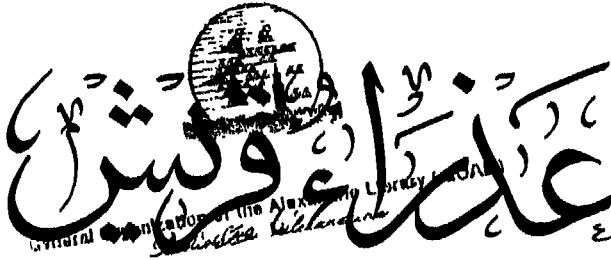 عذراء قريش
General Organization of the Alexandria Library (GOAL)
Bibliotheca Alexandrina